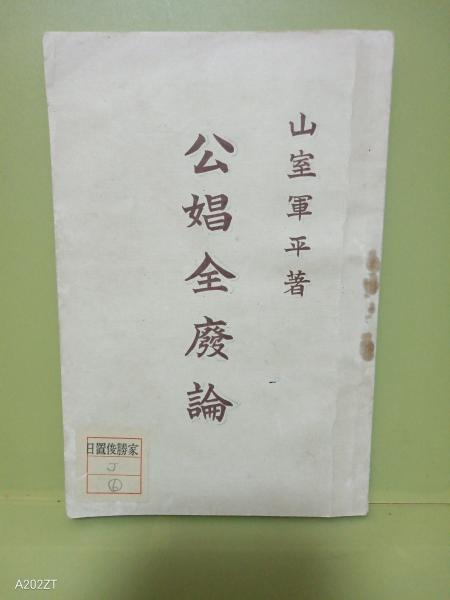 山室軍平著
公娼全廢論
日置俊勝家
J
⑥
A202ZT